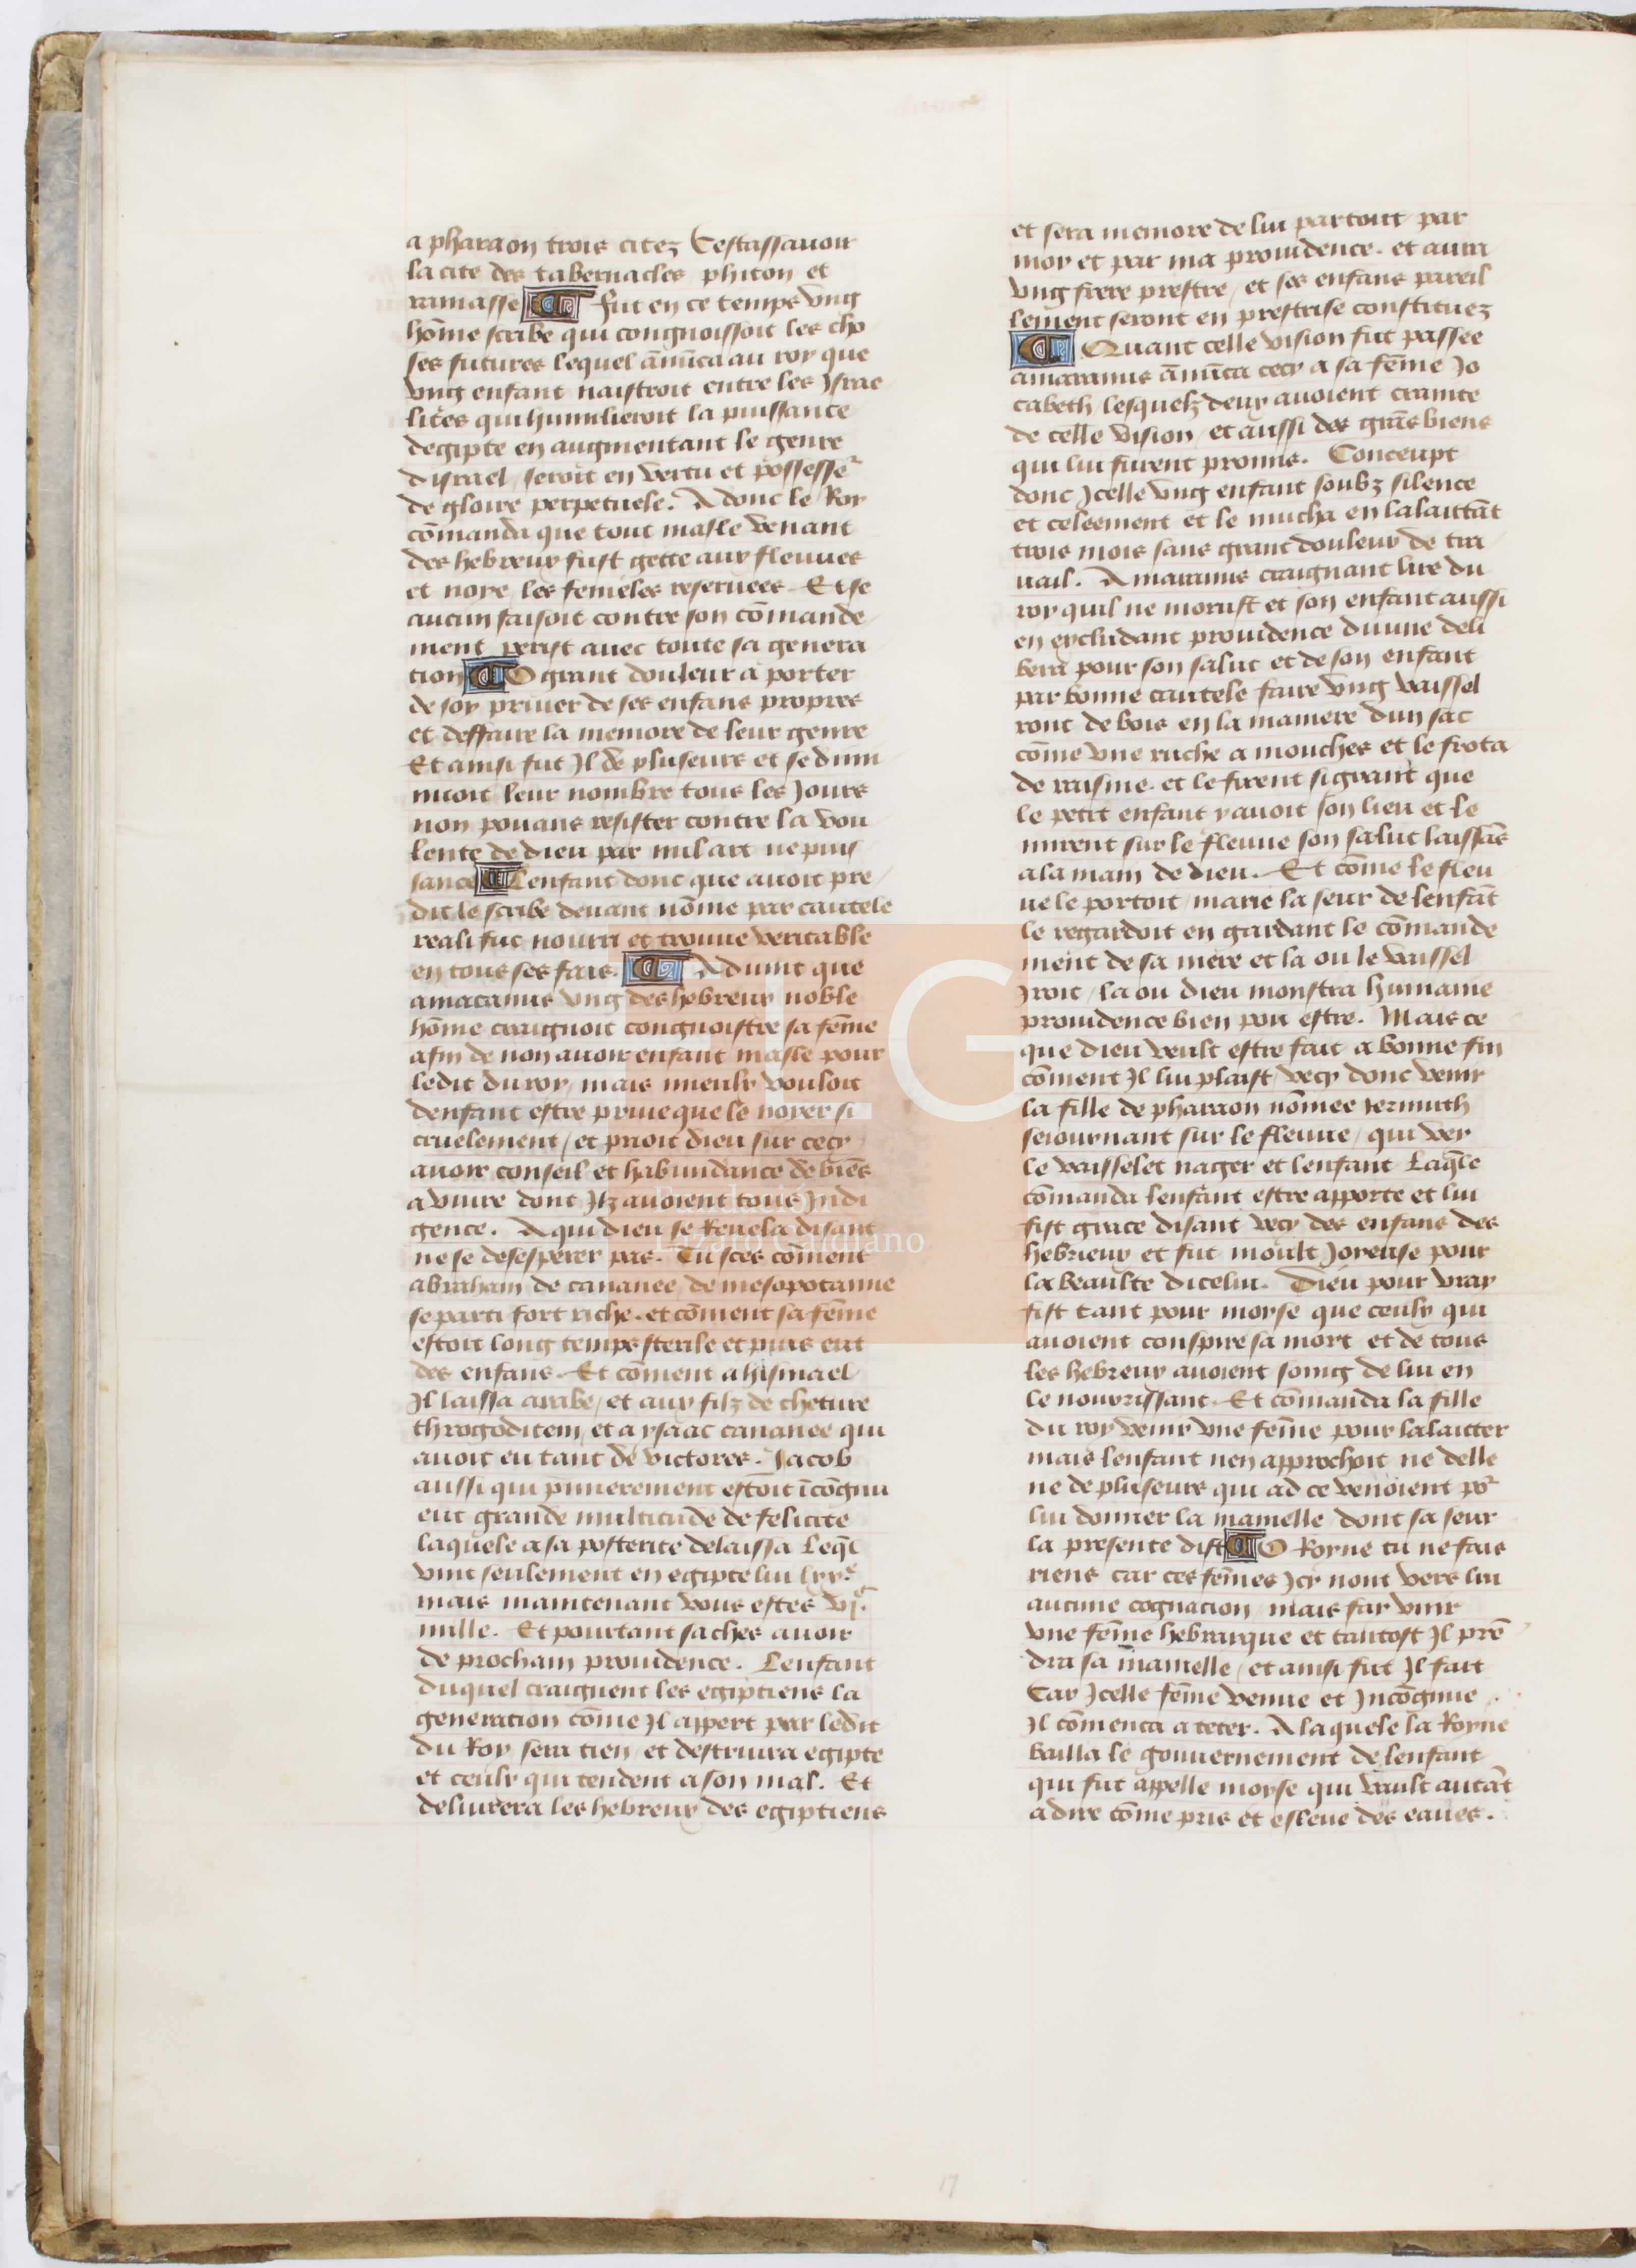 a pharaon trois citez Cestassauoir
la cite des tabernacles phiton et
ramasse ¶ fut en ce temps vng
hõme scribe qui congnoissoit les cho
ses futures lequel anũca au roy que
vng enfant naistroit entre les Israe
lites qui humilieroit la puissance
degipte en augmentant le genre
disrael / seroit en vertu et possesser̃
de gloire perpetuele. Adonc le Roy
cõmanda que tout masle venant
des hebreux fust gette aux fleuues
et noye / les femeles reseruees. Et se
aucun faisoit contre son cõmande
ment perist auec toute sa genera
tion ¶ O grant douleur a porter
de soy priuer de ses enfans propres
et deffaire la memore de leur genre
Et ainsi fut Il de pluseurs et se dimi
nuoit leur nombre tous les Jours
non pouans resister contre la vou
lente de dieu par nul art ne puis
sance ¶ Lenfant donc que auoit pre
dit le scribe deuant nõme par cautele
reali fut nourri et trouue veritable
en tous ses fais. ¶ Aduint que
amaranus vng des hebreux noble
hõme craignoit congnoistre sa fẽme
afin de non auoir enfant masle pour
ledit du roy / mais mieulx vouloit
denfant estre priue que le noyer si
cruelement / et prioit dieu sur cecy
auoir conseil et habundance de biẽs
a viure dont Ilz auoient tous Indi
gence. A qui dieu se Reuela disant
ne se desesperer pas. Tu sces cõment
abraham de cananee de mesopotamie
se parti fort riche. et cõment sa fẽme
estoit long temps sterile et puis eut
des enfans. Et cõment a hismael
Il laissa arabe / et aux filz de cheture
throgoditem / et a ysaac cananee qui
auoit eu tant de victores. Jacob
aussi qui prĩerement estoit ĩcõgnu
eut grande multitude de felicite
laquele a sa posterite delaissa Leql̃
vint seulement en egipte lui lxxe.
mais maintenant vous estes vjc.
mille. Et pourtant saches auoir
de prochain prouidence. Lenfant
duquel craignent les egiptiens la
generation cõme Il appert par ledit
du Roy sera tien / et destruira egipte
et ceulx qui tendent a son mal. Et
deliurera les hebreux des egiptiens
et sera memore de lui partout / par
moy et par ma prouidence. et aura
vng frere prestre / et ses enfans pareil
lement seront en prestrise constituez
¶ Quant celle vision fut passee
amaramus anũca cecy a sa fẽme Jo
cabeth lesquelz deux auoient crainte
de celle vision / et aussi des grãs biens
qui lui furent promis. Conceupt
donc Icelle vng enfant soubz silence
et celeement et le mucha en lalaittãt
trois mois sans grant douleur de tra
uail. Amaramus craignant lire du
roy quil ne morust et son enfant aussi
en excludant prouidence diuine deli
bera pour son salut et de son enfant
par bonne cautele faire vng vaissel
ront de bois en la maniere dun sac
cõme vne ruche a mouches et le frota
de raisine. et le firent si grant que
le petit enfant y auoit son lieu et le
mirent sur le fleuue son salut laissãs
a la main de dieu. Et cõme le fleu
ue le portoit / marie la seur de lenfãt
le regardoit en gardant le cõmande
ment de sa mere et la ou le vaissel
Iroit / la ou dieu monstra humaine
prouidence bien pou estre. Mais ce
que dieu veult estre fait a bonne fin
cõment Il lui plaist / vecy donc venir
la fille de pharaon nõmee termuth
seiournant sur le fleuue / qui vey
le vaisselet nager et lenfant Laql̃e
cõmanda lenfant estre apporte et lui
fist grace disant vecy des enfans des
hebrieux et fut moult Joyeuse pour
la beaulte dicelui. Dieu pour vray
fist tant pour moyse que ceulx qui
auoient conspire sa mort et de tous
les hebreux auoient soing de lui en
le nourrissant. Et cõmanda la fille
du roy venir vne fẽme pour lalaitter
mais lenfant nen approchoit ne delle
ne de pluseurs qui ad ce venoient por̃
lui donner la mamelle dont sa seur
la presente dist ¶ O Royne tu ne fais
riens car ces fẽmes Icy nont vers lui
aucune cognacion / mais fay venir
vne fẽme hebrayque et tantost Il prẽ
dra sa mamelle / et ainsi fut Il fait
Car Icelle fẽme venue et Incõgnue
Il cõmenca a teter. A laquele la Royne
bailla le gouuernement de lenfant
qui fut appelle moyse qui vault autãt
a dire cõme pris et esleue des eaues.
17
LG
Fundación
Lázaro Galdiano